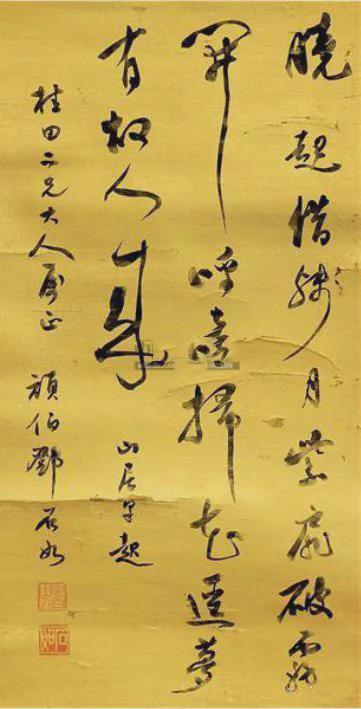 曉起惜殘月柴扉破霧
開呼童掃花逕夢
有故人來 山居早起
桂田二兄大人屬正 頑伯鄧石如